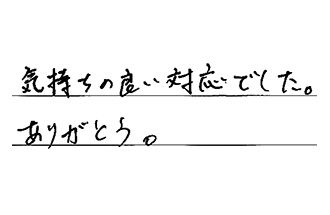 気持ちの良い対応でした。
ありがとう。